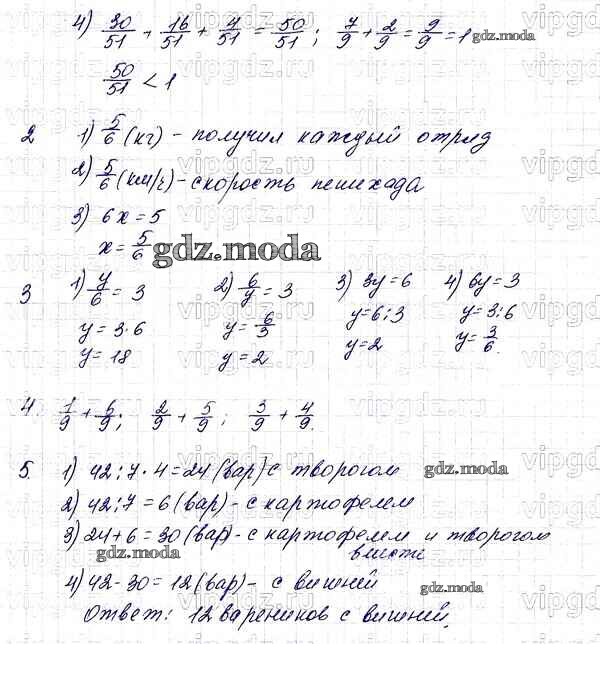 4) 30/51 + 16/51 + 4/51 = 50/51; 7/9 + 2/9 = 9/9 = 1 gdz.moda
50/51 < 1
2 1) 5/6 (кг) - получил каждый отряд
2) 5/6 (км/ч) - скорость пешехода
3) 6x = 5
x = 5/6 gdz.moda
3 1) y/6 = 3 2) 6/y = 3 3) 3y = 6 4) 6y = 3
y = 3·6 y = 6/3 y = 6:3 y = 3:6
y = 18 y = 2 y = 2 y = 3/6.
4. 1/9 + 6/9; 2/9 + 5/9; 3/9 + 4/9.
5. 1) 42:7·4 = 24 (вар) с творогом gdz.moda
2) 42:7 = 6 (вар) - с картофелем
3) 24+6 = 30 (вар) - с картофелем и творогом
gdz.moda вместе
4) 42-30 = 12 (вар) - с вишней gdz.moda
Ответ: 12 вареников с вишней.